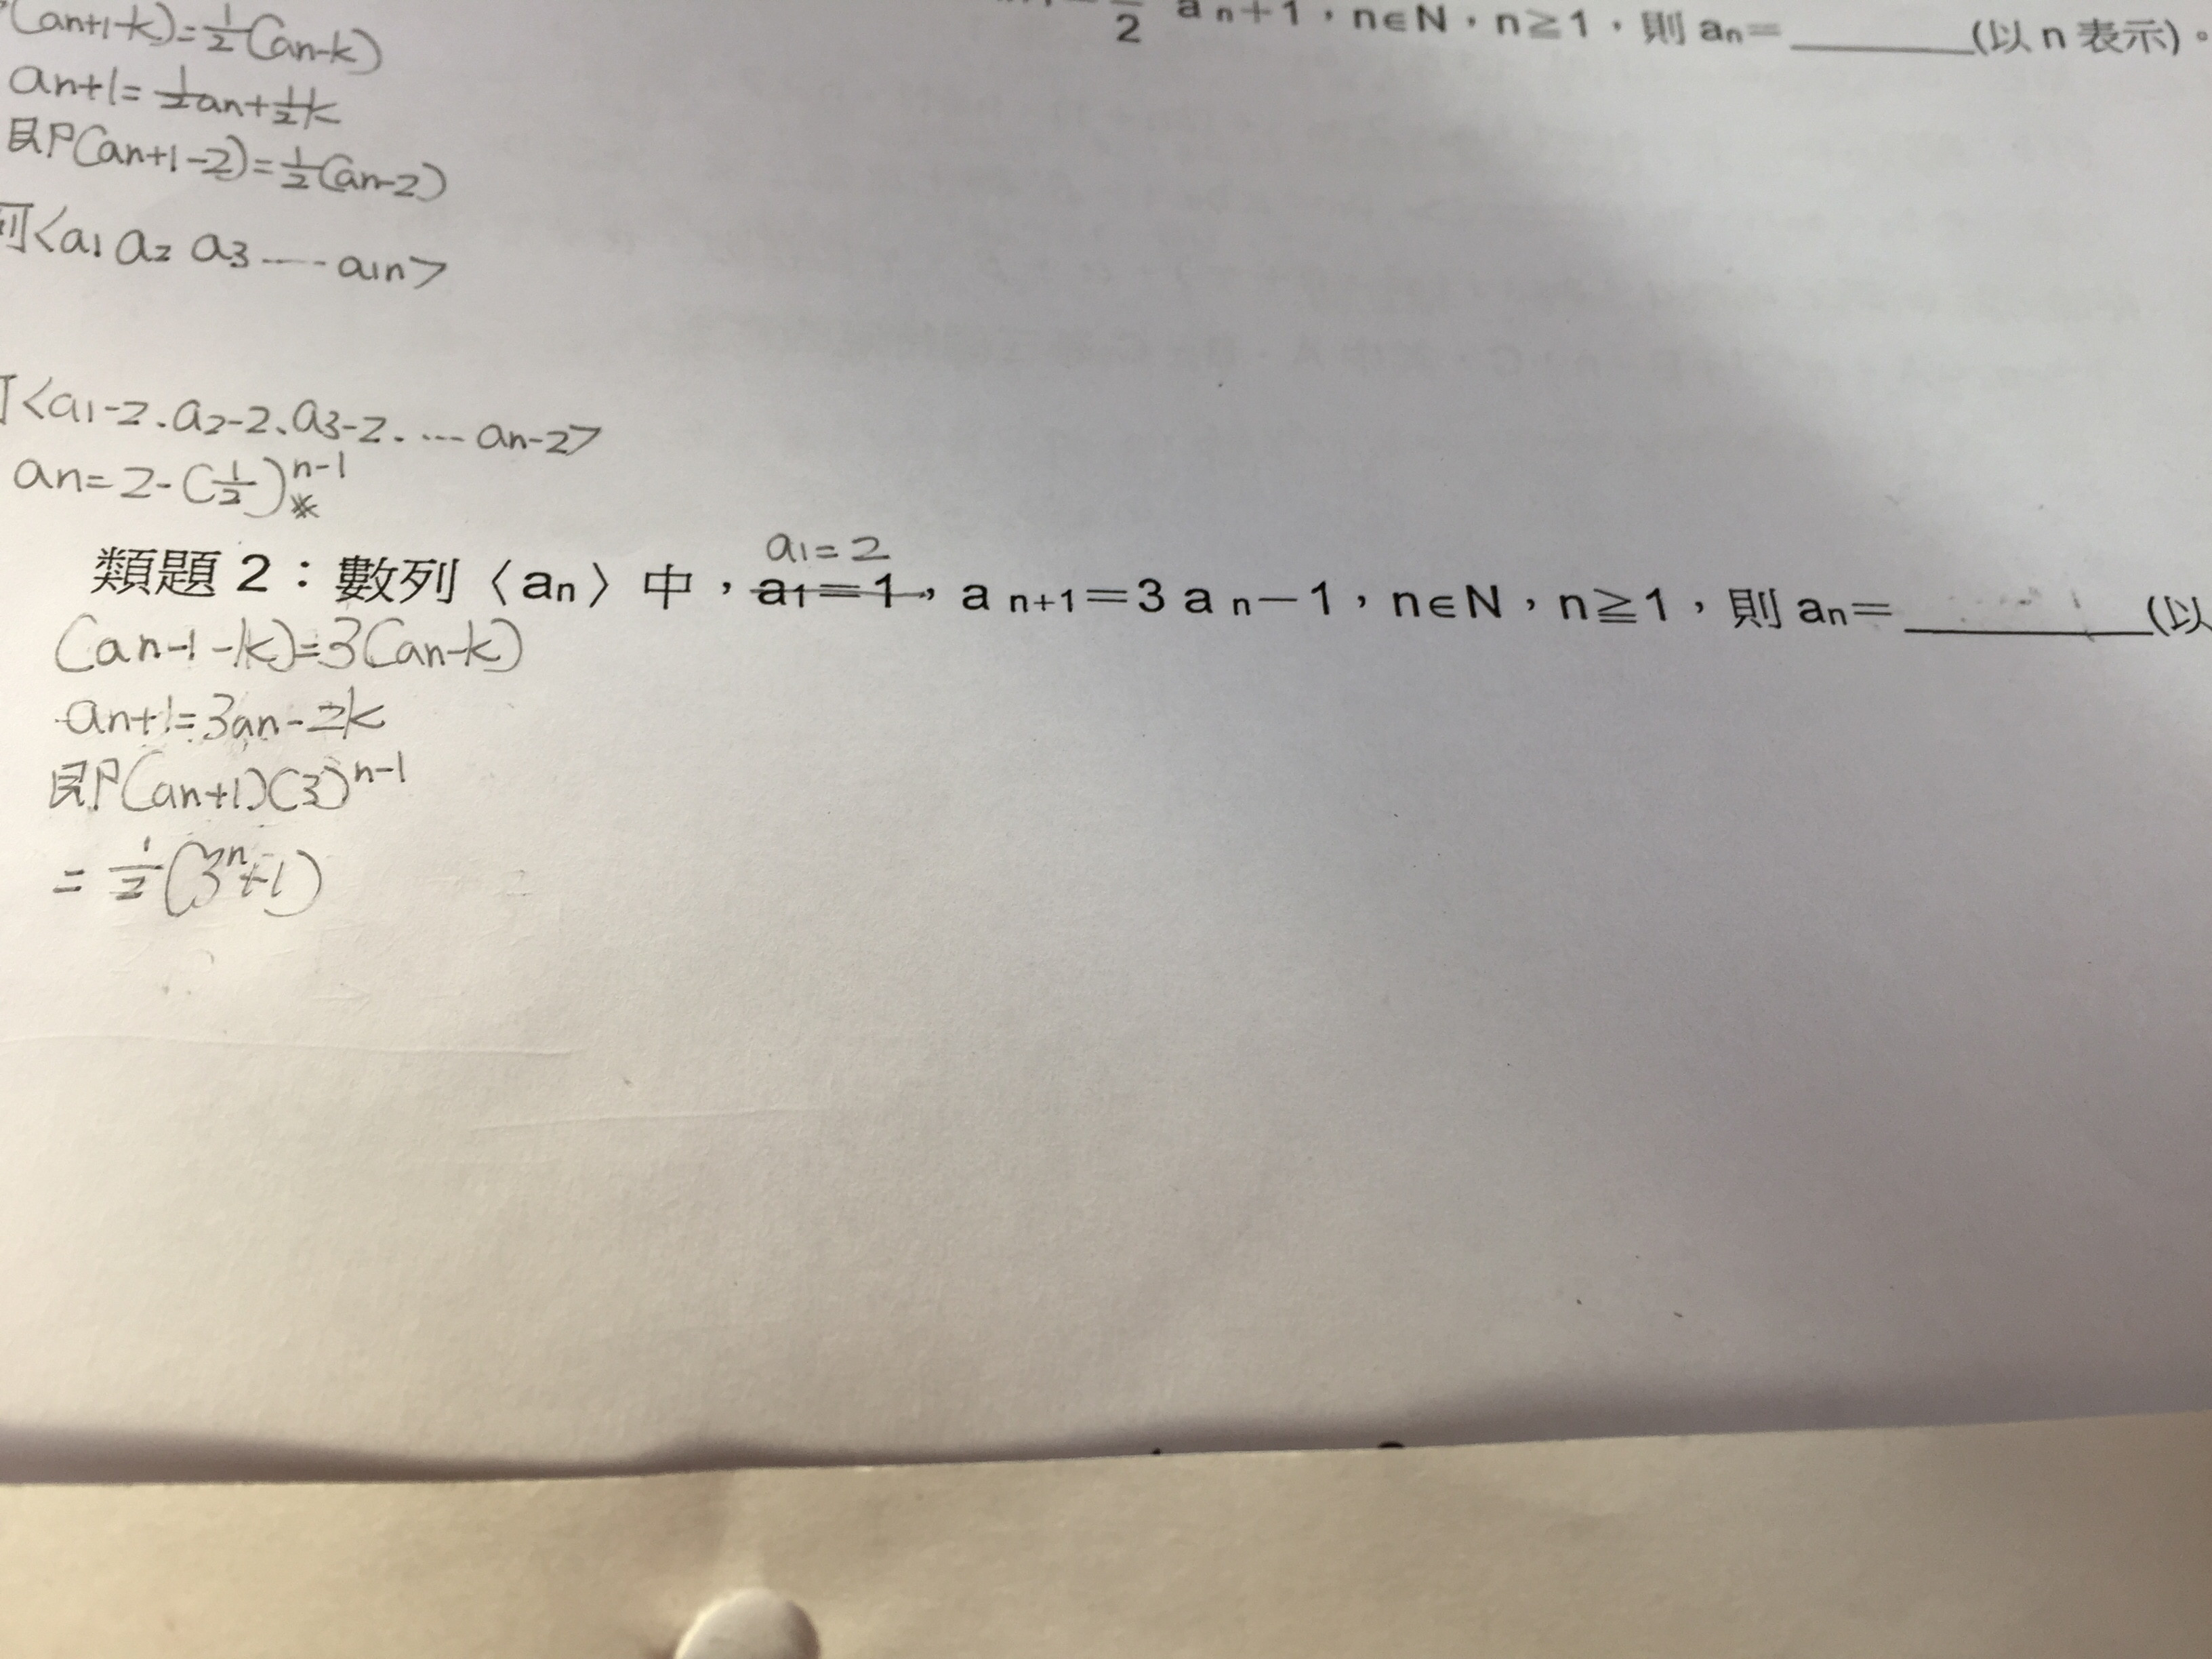 (an+1-k)=1/2(an-k)
2 a n+1，n∈N，n≧1，則 an=______(以 n 表示)。
an+1=1/2an+1/2k
即(an+1-2)=1/2(an-2)
列<a1 a2 a3 ---- a1n>
<a1-2、a2-2、a3-2、--- an-2>
an=2-(1/2)^n-1 ※
a1=2
類題 2：數列〈an〉中，a1=1，a n+1=3 a n-1，n∈N，n≧1，則 an=______(以
(an-1-k)=3(an-k)
an+1=3an-2k
即(an+1)(3)^n-1
=1/2(3^n+1)